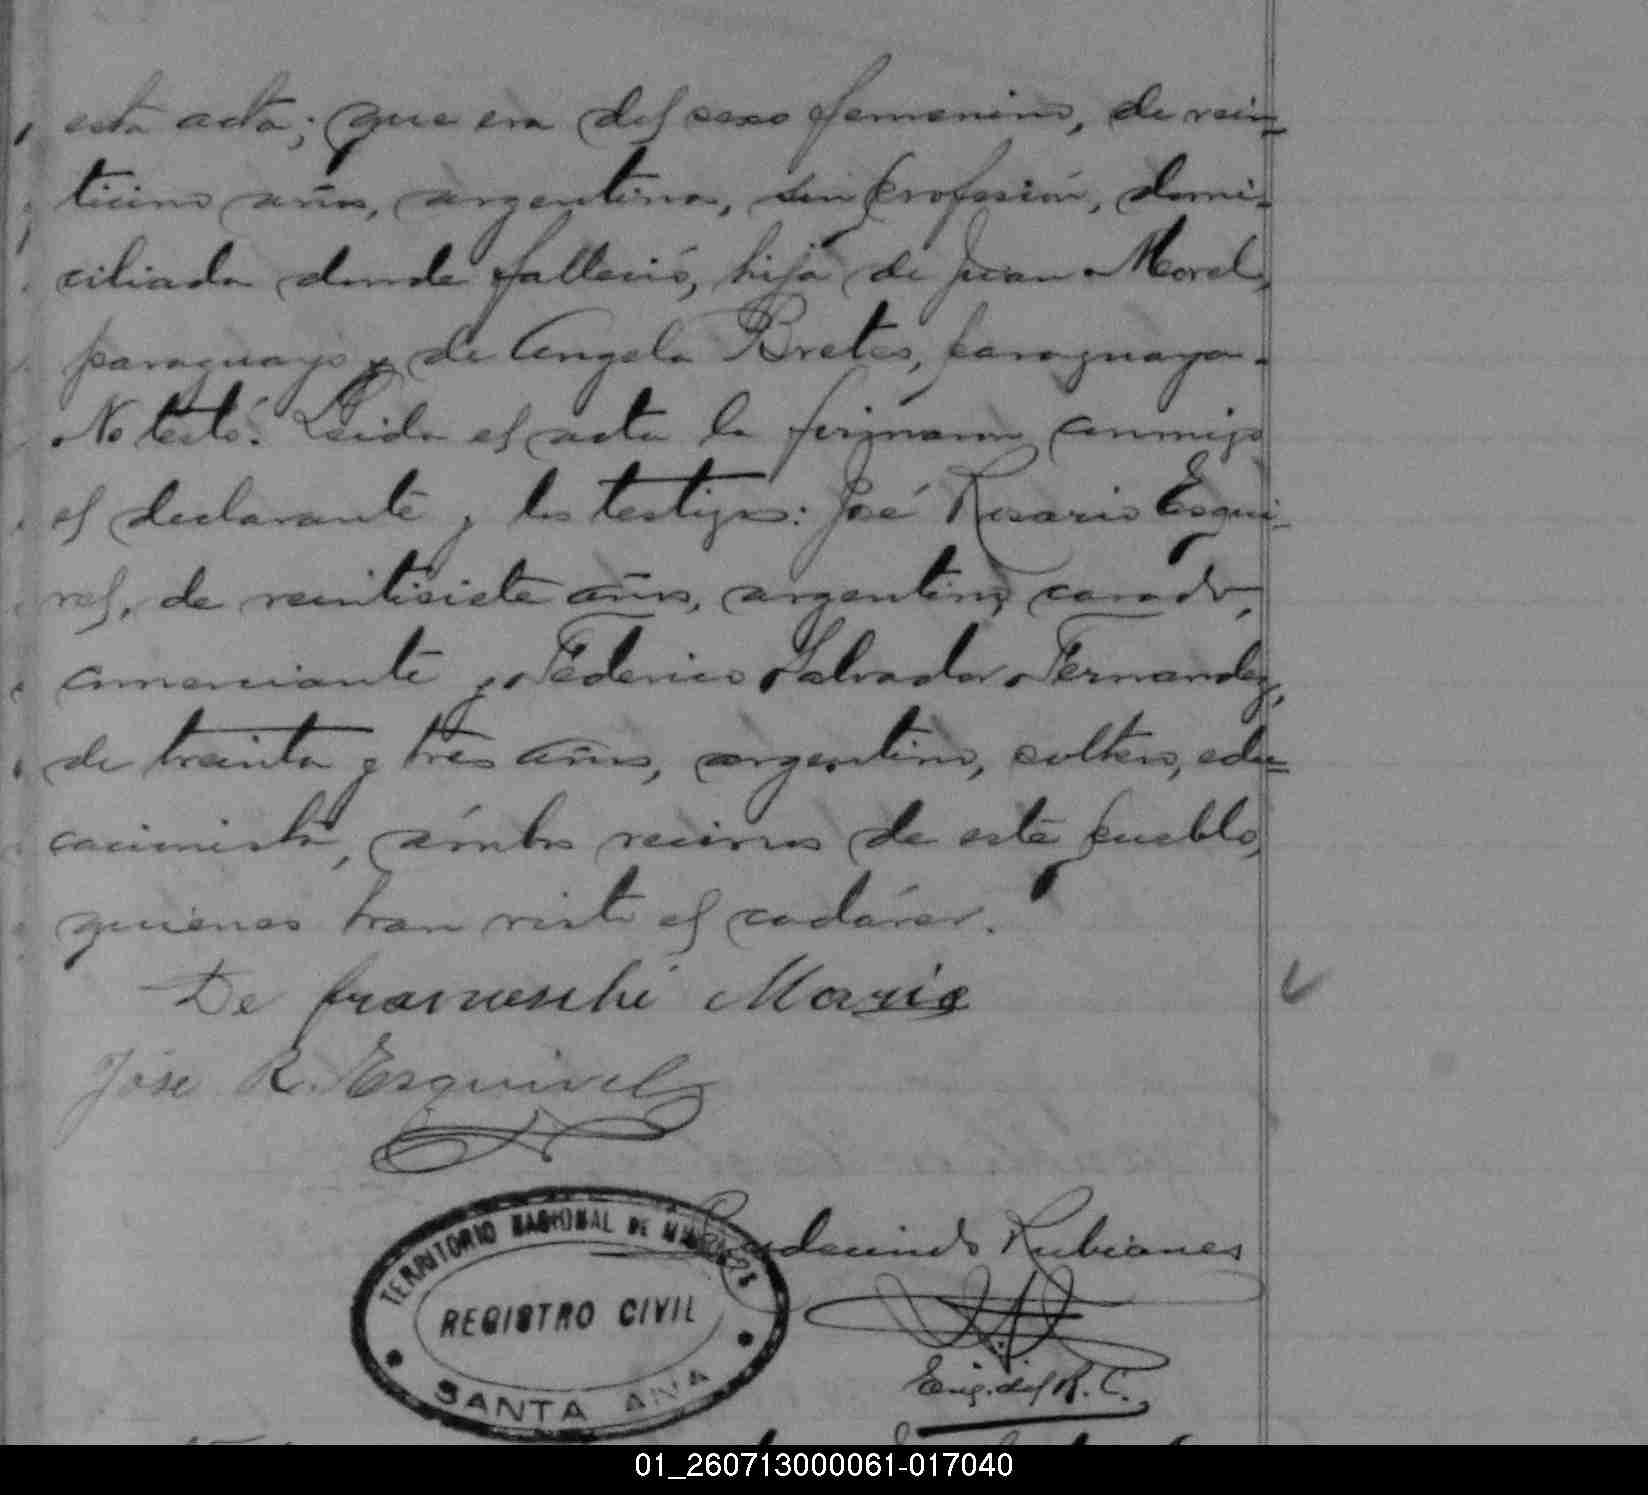 esta acta; que era del sexo femenino, de vein-
ticinco años, argentina, sin profesión, domi-
ciliada donde falleció, hija de Juan Morel,
paraguayo y de Angela Bretes, paraguaya.
No testó. Leida el acta la firmaron conmigo
el declarante y los testigos: José Rosario Esqui-
vel, de veintisiete años, argentino, casado,
comerciante y Federico Salvador Fernandez,
de treinta y tres años, argentino, soltero, edu-
cacionista, ámbos vecinos de este pueblo,
quienes han visto el cadáver.
De franceschi Mario
José R. Esquivel
Rudecindo Rubianes
TERRITORIO NACIONAL DE MISIONES
REGISTRO CIVIL
SANTA ANA
Enc. del R. C.
01_260713000061-017040